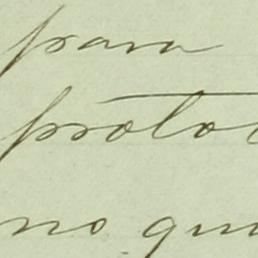 para
protoc
no qua